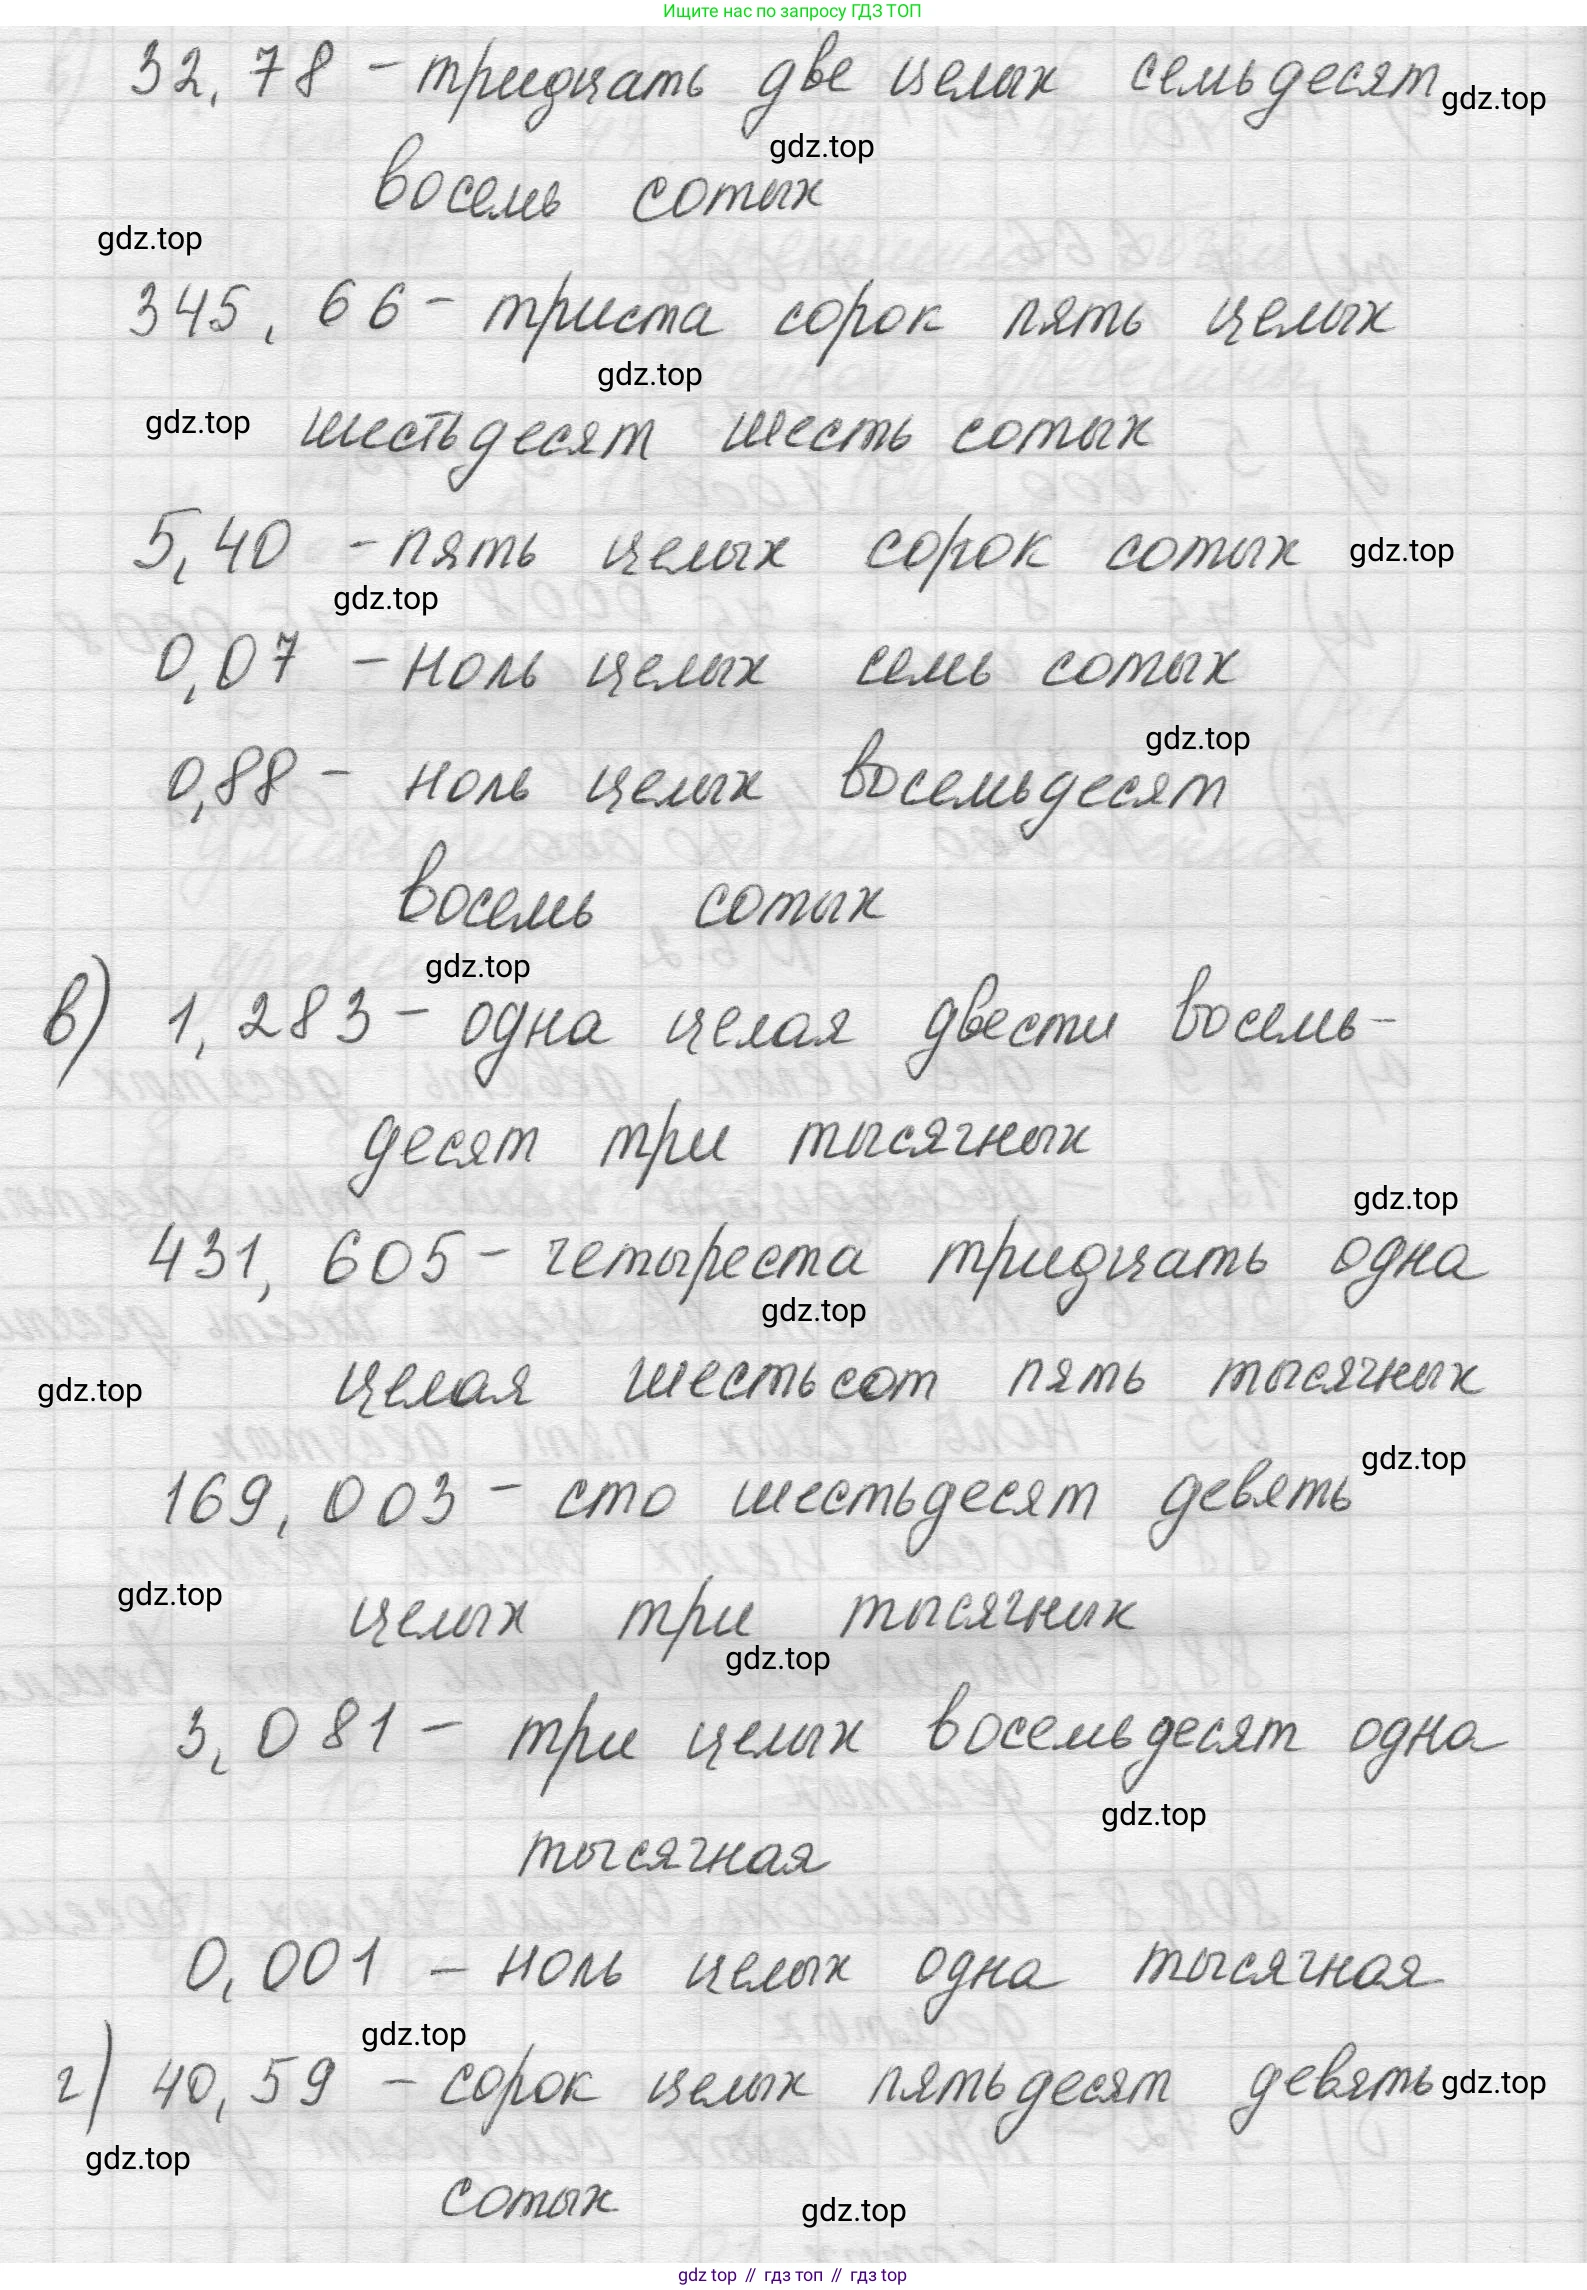 Ищите нас по запросу ГДЗ ТОП
32,78 – тридцать две целых семьдесят
gdz.top
gdz.top
восемь сотых
gdz.top
345,66 – триста сорок пять целых
gdz.top
gdz.top
шестьдесят шесть сотых
5,40 – пять целых сорок сотых
gdz.top
gdz.top
0,07 – ноль целых семь сотых
gdz.top
0,88 – ноль целых восемьдесят
восемь сотых
gdz.top
в) 1,283 – одна целая двести восемь-
десят три тысячных
gdz.top
431,605 – четыреста тридцать одна
gdz.top
gdz.top
целая шестьсот пять тысячных
gdz.top
169,003 – сто шестьдесят девять
gdz.top
целых три тысячных
gdz.top
3,081 – три целых восемьдесят одна
gdz.top
тысячная
0,001 – ноль целых одна тысячная
gdz.top
г) 40,59 – сорок целых пятьдесят девять
gdz.top
gdz.top
сотых
gdz.top
gdz top // гдз топ // гдз top